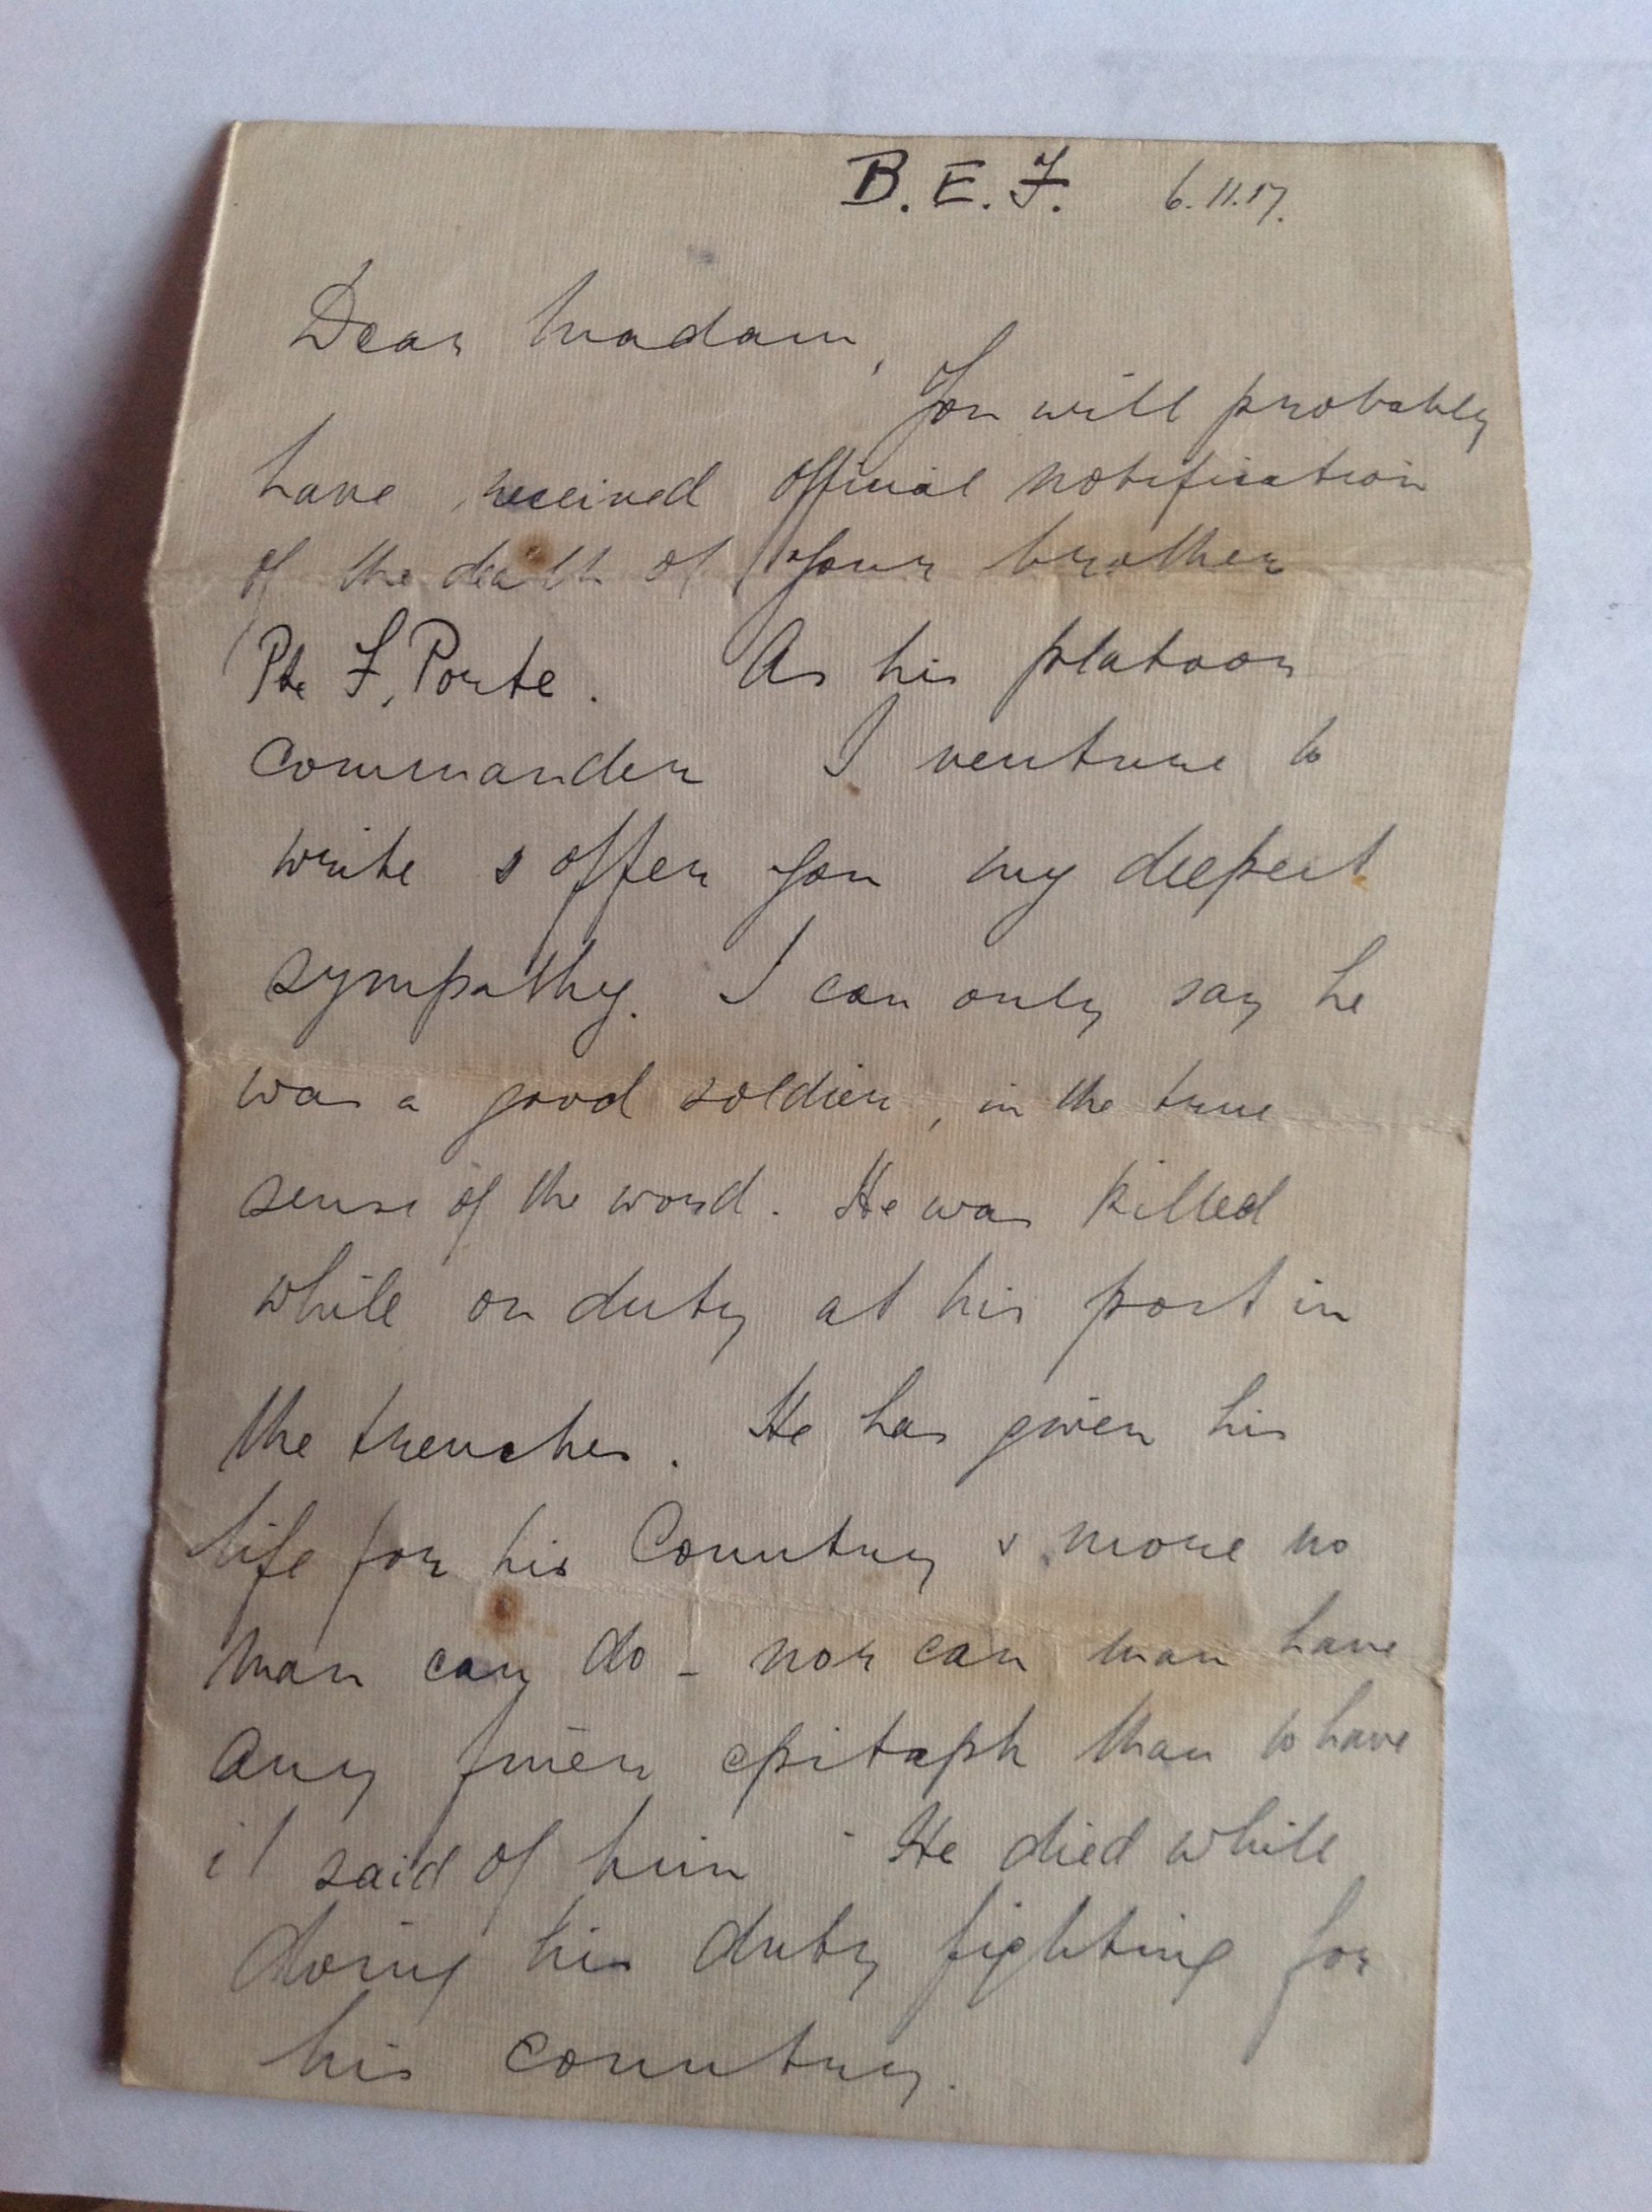 B. E. F. 6.11.17.
Dear Madam,
You will probably
have received official notification
of the death of your brother
Pte F. Porte. As his platoon
commander I venture to
write & offer you my deepest
sympathy. I can only say he
was a good soldier, in the true
sense of the word. He was killed
while on duty at his post in
the trenches. He has given his
life for his Country & more no
man can do - nor can man have
any finer epitaph than to have
it said of him - He died while
doing his duty fighting for
his country.